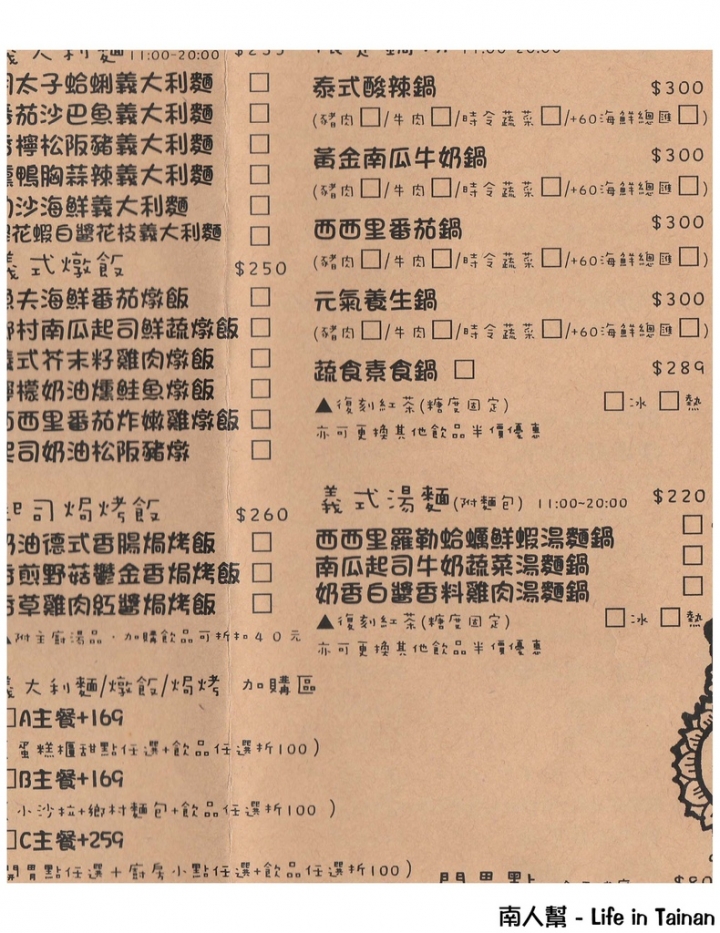 義大利麵 11:00-20:00
太子蛤蜊義大利麵 □
番茄沙巴魚義大利麵 □
檸松阪豬義大利麵 □
鴨胸蒜辣義大利麵 □
沙海鮮義大利麵 □
花蝦白醬花枝義大利麵 □
義式燉飯 $250
漁夫海鮮番茄燉飯 □
鄉村南瓜起司鮮蔬燉飯 □
義式芥末籽雞肉燉飯 □
檸檬奶油燻鮭魚燉飯 □
西西里番茄炸嫩雞燉飯 □
起司奶油松阪豬燉 □
起司焗烤飯 $260
奶油德式香腸焗烤飯 □
香煎野菇鬱金香焗烤飯 □
香草雞肉紅醬焗烤飯 □
▲附主廚湯品、加購飲品可折扣40元
義大利麵/燉飯/焗烤 加購區
□A主餐+169
(蛋糕櫃甜點任選+飲品任選折100)
□B主餐+169
(小沙拉+鄉村麵包+飲品任選折100)
□C主餐+259
(開胃點任選+廚房小點任選+飲品任選折100)
泰式酸辣鍋 $300
(豬肉□/牛肉□/時令蔬菜□/+60海鮮總匯□)
黃金南瓜牛奶鍋 $300
(豬肉□/牛肉□/時令蔬菜□/+60海鮮總匯□)
西西里番茄鍋 $300
(豬肉□/牛肉□/時令蔬菜□/+60海鮮總匯□)
元氣養生鍋 $300
(豬肉□/牛肉□/時令蔬菜□/+60海鮮總匯□)
蔬食素食鍋 □ $289
▲復刻紅茶(糖度固定) □冰 □熱
亦可更換其他飲品半價優惠
義式湯麵(附麵包) 11:00~20:00 $220
西西里羅勒蛤蠣鮮蝦湯麵鍋 □
南瓜起司牛奶蔬菜湯麵鍋 □
奶香白醬香料雞肉湯麵鍋 □
▲復刻紅茶(糖度固定) □冰 □熱
亦可更換其他飲品半價優惠
開胃點 $80
南人幫 - Life in Tainan